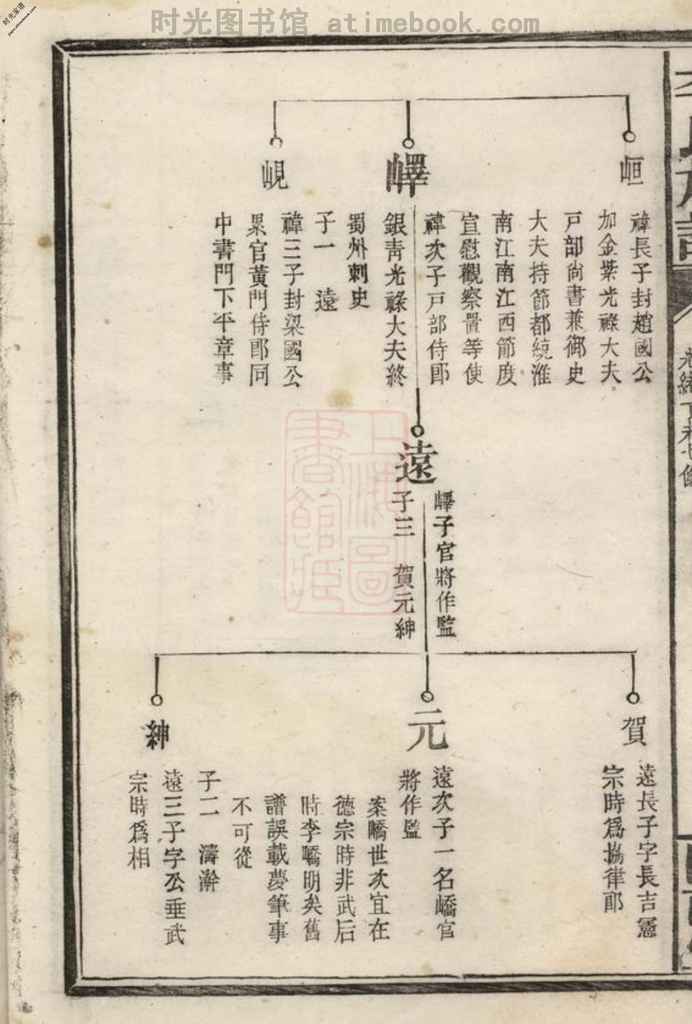 时光图书馆 atimebook.com
峘
禕長子封趙國公
加金紫光祿大夫
戸部尚書兼御史
大夫持節都統淮
南江南江西節度
宣慰觀察置等使
嶧
禕次子戸部侍郎
銀青光祿大夫終
蜀州刺史
子一 遠
峴
禕三子封梁國公
累官黄門侍郎同
中書門下平章事
遠
嶧子官將作監
子三 賀元紳
賀
遠長子字長吉憲
宗時爲協律郎
元
遠次子一名嶠官
將作監
案嶠世次宜在
德宗時非武后
時李嶠明矣舊
譜誤載夢筆事
不可從
子二 濤澣
紳
遠三子字公垂武
宗時爲相
上海圖
書館藏